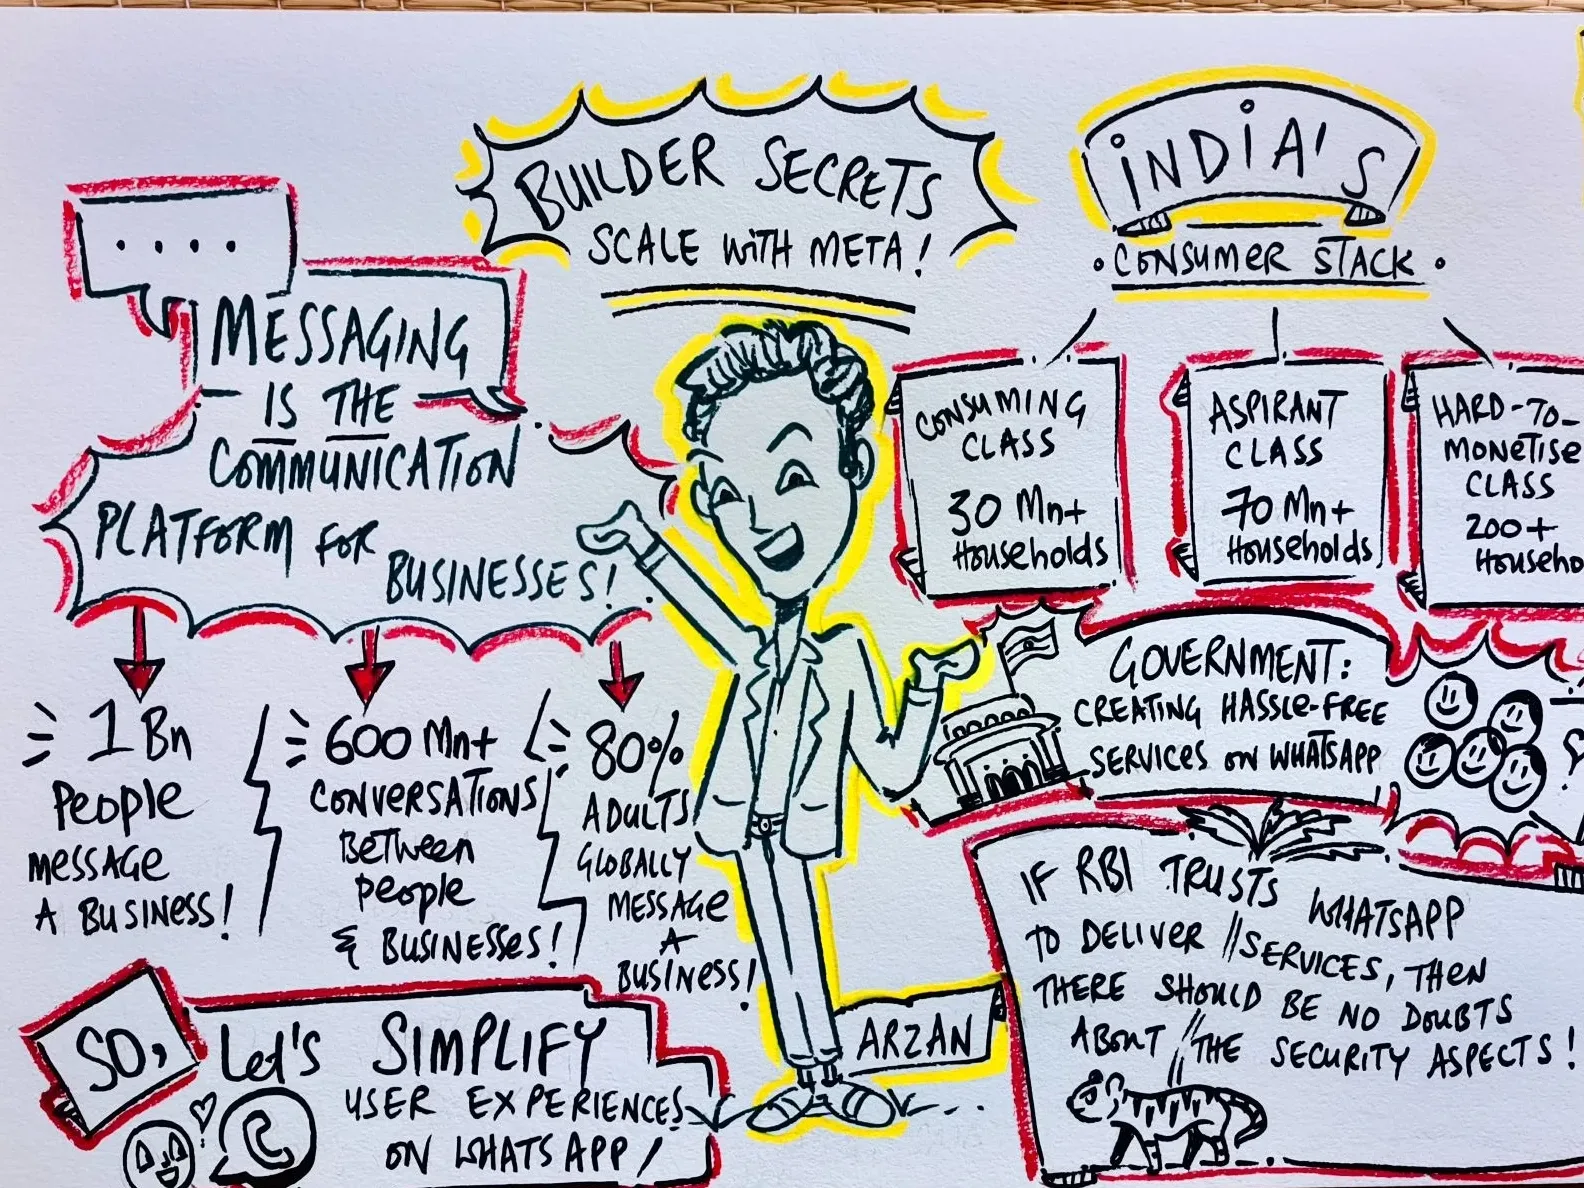 BUILDER SECRETS
SCALE WITH META!
....
MESSAGING
IS THE
COMMUNICATION
PLATFORM FOR
BUSINESSES!
1 Bn
People
MESSAGE
A BUSINESS!
600 Mn+
CONVERSATIONS
BETWEEN
People
& BUSINESSES!
80%
ADULTS
GLOBALLY
MESSAGE
A
BUSINESS!
SO, Let's SIMPLIFY
USER EXPERIENCES
ON WHATSAPP!
ARZAN
INDIA'S
• CONSUMER STACK •
CONSUMING
CLASS
30 Mn+
Households
ASPIRANT
CLASS
70 Mn+
Households
HARD-TO-
MONETISE
CLASS
200+
Househo
GOVERNMENT:
CREATING HASSLE-FREE
SERVICES ON WHATSAPP
IF RBI TRUSTS WHATSAPP
TO DELIVER SERVICES, THEN
THERE SHOULD BE NO DOUBTS
ABOUT THE SECURITY ASPECTS!